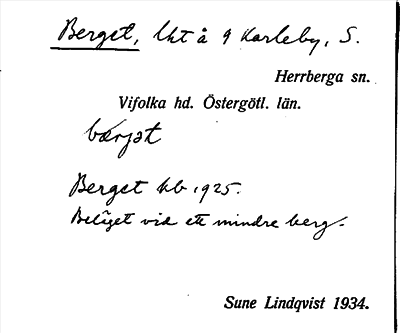 Berget, lht å 9 Karleby, S.
Herrberga sn.
Vifolka hd. Östergötl. län.
bærjət
Berget kb 1925.
Beläget vid ett mindre berg.
Sune Lindqvist 1934.